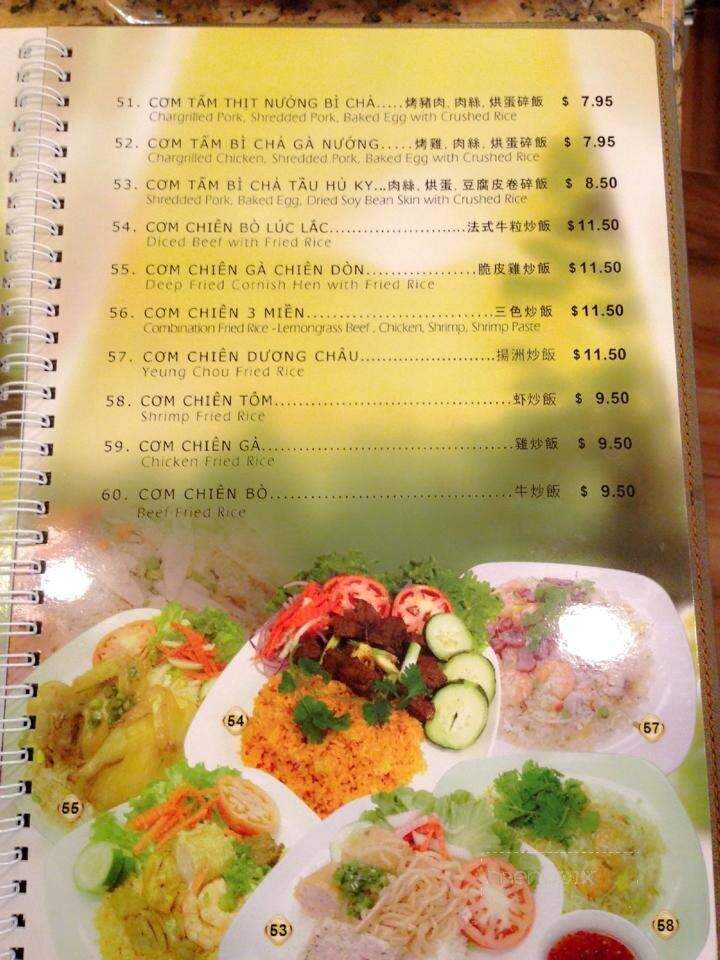 51. CƠM TẤM THỊT NƯỚNG BÌ CHẢ.....烤豬肉, 肉絲, 烘蛋碎飯 $ 7.95
Chargrilled Pork, Shredded Pork, Baked Egg with Crushed Rice
52. CƠM TẤM BÌ CHẢ GÀ NƯỚNG.....烤雞, 肉絲, 烘蛋碎飯 $ 7.95
Chargrilled Chicken, Shredded Pork, Baked Egg with Crushed Rice
53. CƠM TẤM BÌ CHẢ TÀU HỦ KY...肉絲, 烘蛋, 豆腐皮卷碎飯 $ 8.50
Shredded Pork, Baked Egg, Dried Soy Bean Skin with Crushed Rice
54. CƠM CHIÊN BÒ LÚC LẮC.........................法式牛粒炒飯 $11.50
Diced Beef with Fried Rice
55. CƠM CHIÊN GÀ CHIÊN DÒN..................脆皮雞炒飯 $11.50
Deep Fried Cornish Hen with Fried Rice
56. CƠM CHIÊN 3 MIỀN..............................三色炒飯 $11.50
Combination Fried Rice - Lemongrass Beef , Chicken, Shrimp, Shrimp Paste
57. CƠM CHIÊN DƯƠNG CHÂU.........................揚洲炒飯 $11.50
Yeung Chou Fried Rice
58. CƠM CHIÊN TÔM......................................虾炒飯 $ 9.50
Shrimp Fried Rice
59. CƠM CHIÊN GÀ........................................雞炒飯 $ 9.50
Chicken Fried Rice
60. CƠM CHIÊN BÒ.......................................牛炒飯 $ 9.50
Beef Fried Rice
54
57
55
53
58